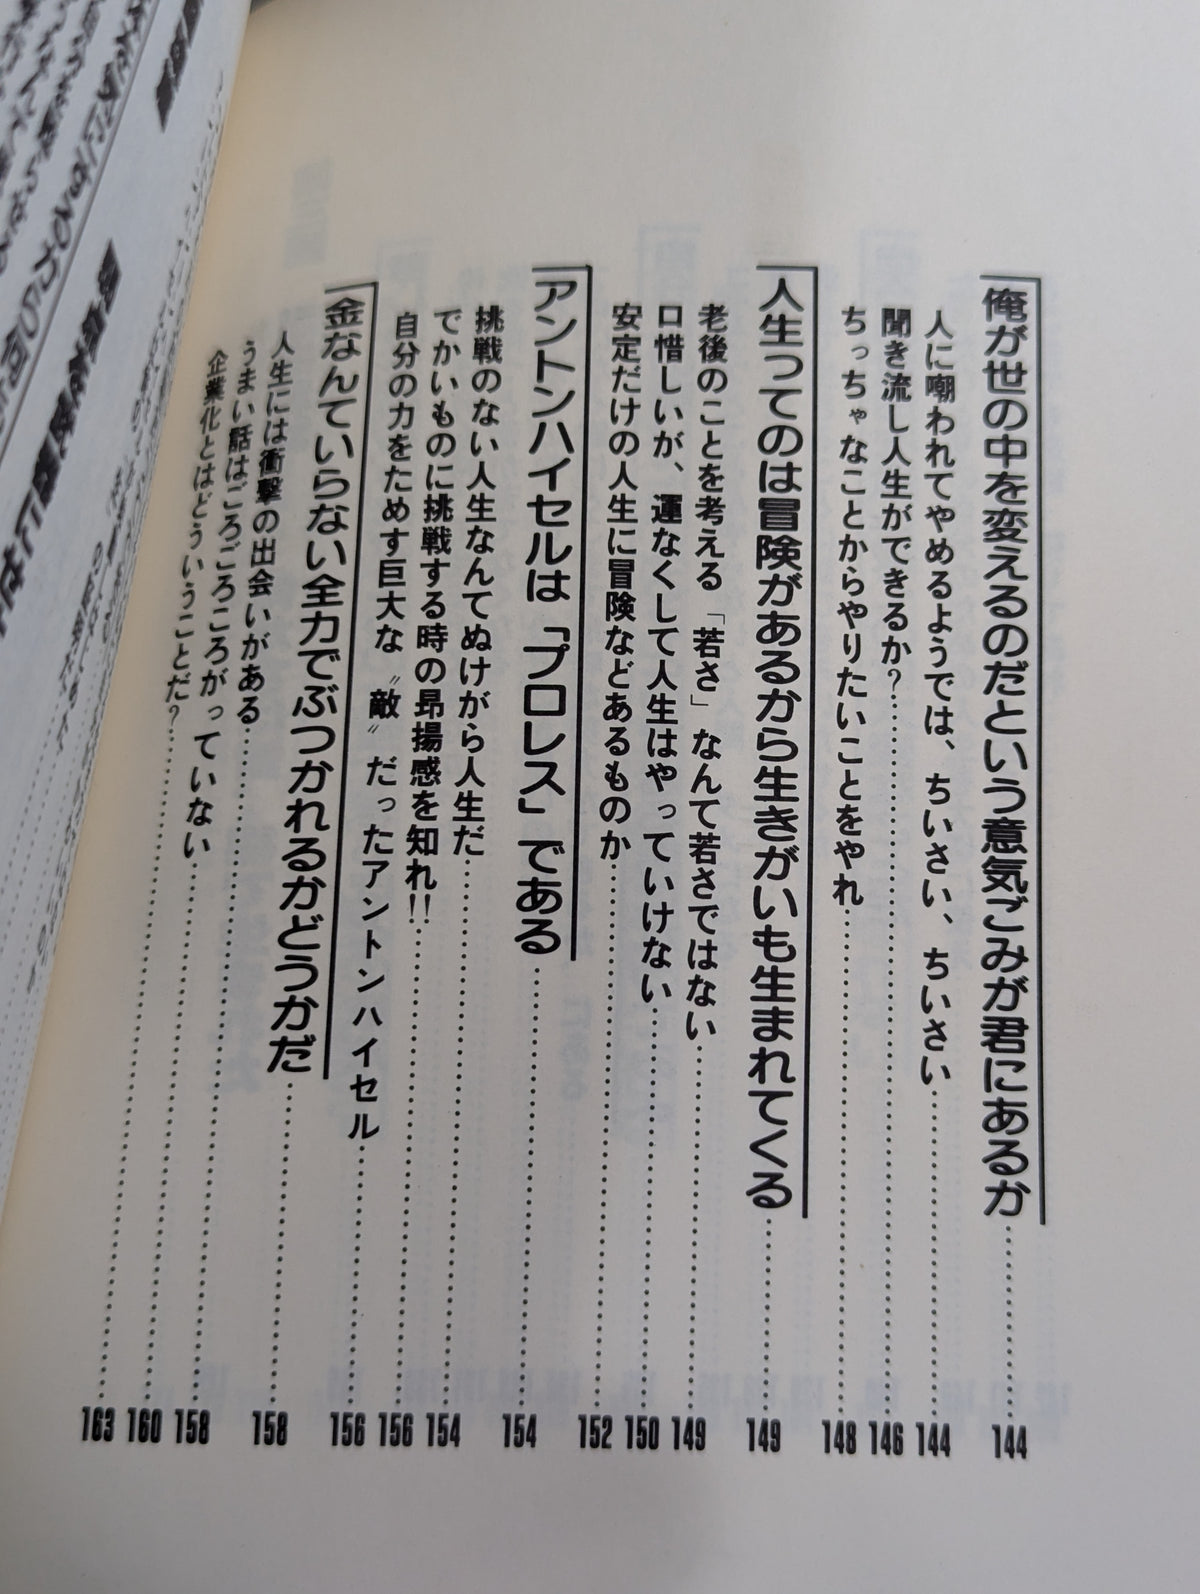 俺が世の中を変えるのだという意気ごみが君にあるか……144
人に嘲われてやめるようでは、ちいさい、ちいさい……144
聞き流し人生ができるか?……146
ちっちゃなことからやりたいことをやれ……148
人生ってのは冒険があるから生きがいも生まれてくる……149
老後のことを考える「若さ」なんて若さではない……149
口惜しいが、運なくして人生はやっていけない……150
安定だけの人生に冒険などあるものか……152
アントンハイセルは「プロレス」である……154
挑戦のない人生なんてぬけがら人生だ……154
でかいものに挑戦する時の昂揚感を知れ!!……156
自分の力をためす巨大な〝敵〟だったアントンハイセル……156
金なんていらない全力でぶつかれるかどうかだ……158
人生には衝撃の出会いがある……158
うまい話はごろごろころがっていない……160
企業化とはどういうことだ?……163